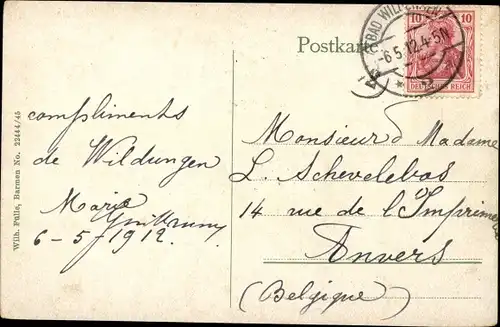 Postkarte
BAD WILDUNGEN
-6.5.12.4-5N
10 10
DEUTSCHES REICH
compliments
de Wildungen
Marie
6-5-1912.
Monsieur Madame
L. Schevelebos
14 rue de l'Imprimerie
Anvers
(Belgique)
Wilh. Pülle, Barmen No. 22444/45